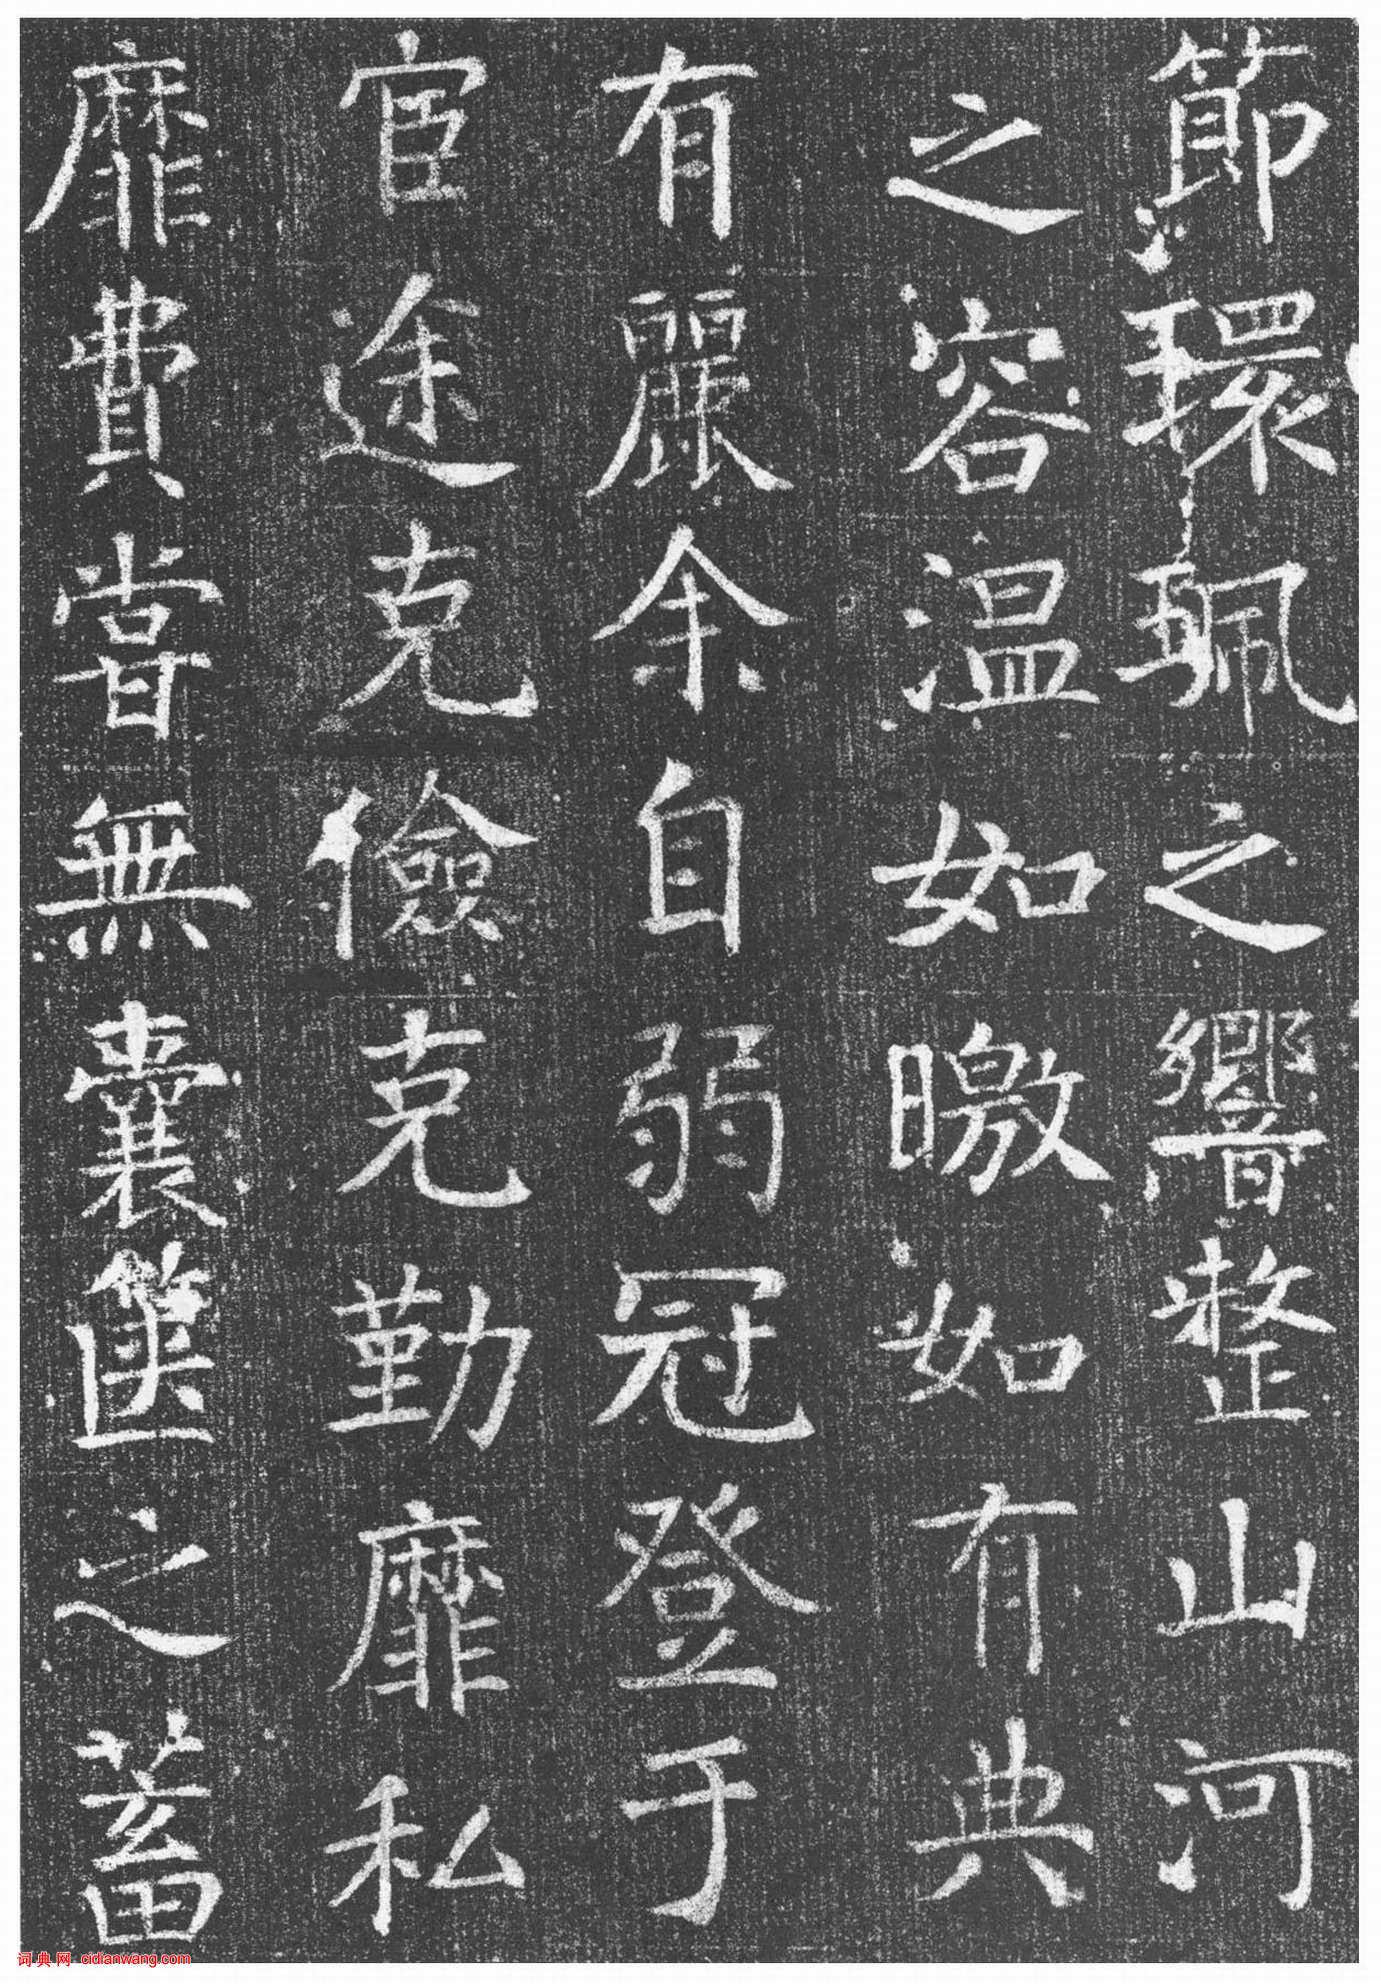 節環珮之響整山河
之容温如曒如有典
有麗余自弱冠登于
宦途克儉克勤靡私
靡費嘗無囊篋之蓄
词典网 cidianwang.com